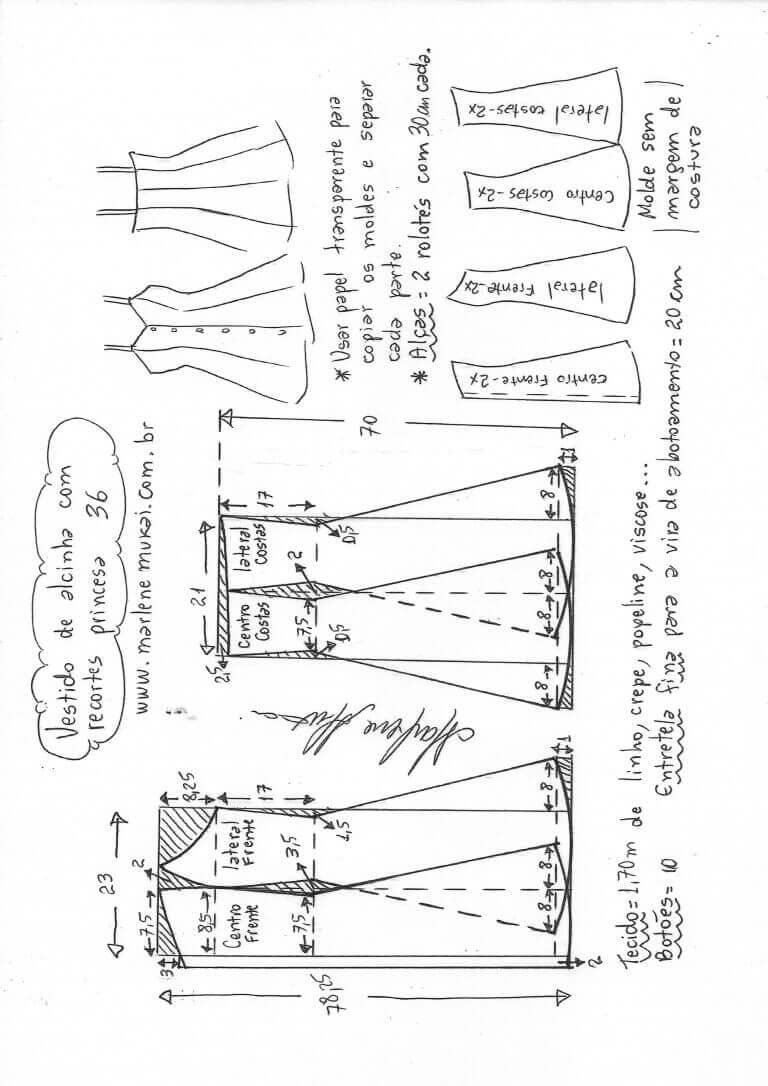 Vestido de alcinha com
recortes princesa 36
www.marlenemukai.com.br
* Usar papel transparente para
copiar os moldes e separar
cada parte.
* Alças = 2 rolotês com 30cm cada.
23
7,5
2
8,25
3
8,5
17
Centro
Frente
lateral
Frente
7,5
3,5
1,5
78,25
8
8
8
1
2
21
2,5
17
Centro
Costas
lateral
Costas
7,5
2
0,5
0,5
70
8
8
8
8
1
Centro Frente-2x
lateral Frente-2x
Centro Costas-2x
lateral costas-2x
Molde sem
margem de
costura
Tecido=1,70m de linho, crepe, popeline, viscose...
Botões= 10 Entretela fina para a vira de abotoamento=20cm